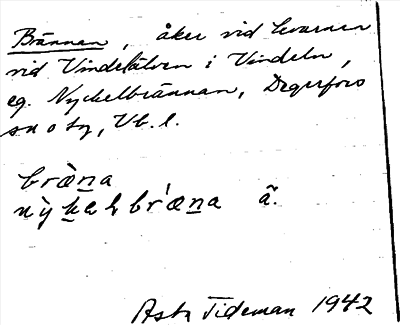 Brännan, åker vid kvarnen
vid Vindelälven i Vindeln,
eg. Nyckelbrännan, Degerfors
sn o tg, Vb. l.
bræ̀na
nỳkelbræ̀na ã.
Asta Tideman 1942